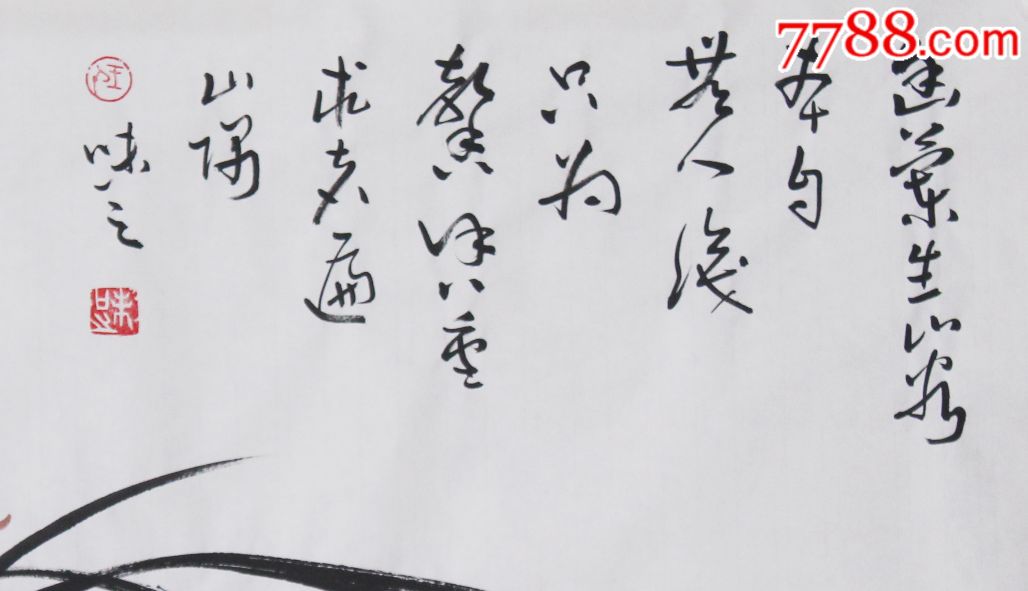 7788.com
幽蘭生山谷
本自
無人識
只为
馨香重
求者遍
山隅
味之
味